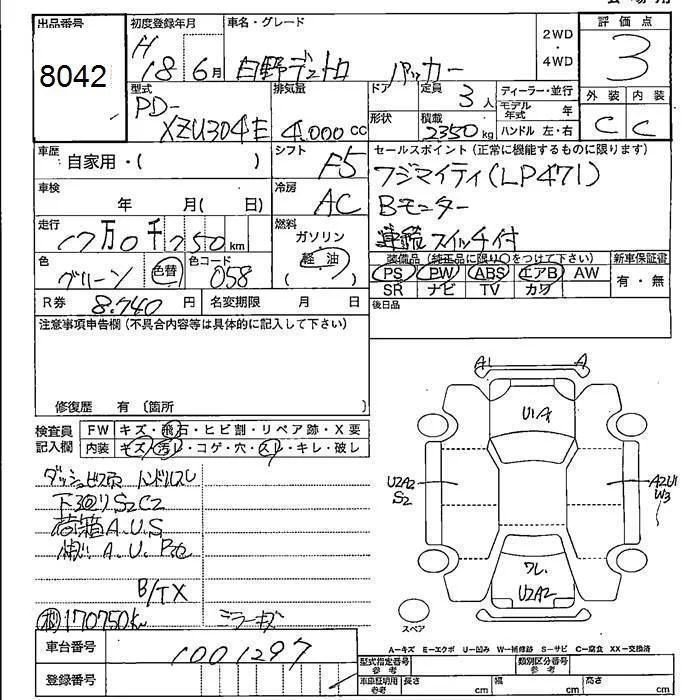 出品番号 初度登録年月 車名・グレード 評価点
8042 H18 6月 日野デュトロ パッカー 2WD・4WD 3
型式 排気量 ドア 定員 3人 ディーラー・並行 外装 内装
PD-XZU304E 4,000cc 形状 積載 2350kg モデル年式 年 C C
ハンドル 左・右
車歴 自家用・( ) シフト F5 セールスポイント(正常に機能するものに限ります)
車検 年 月( 日) 冷房 AC フジマイティ(LP471)
Bモニター
走行 17万0千750km 燃料 ガソリン 軽油 スイッチ付
色 グリーン 色替 色コード 058 装備品(純正品に限り○をつけて下さい) 新車保証書
PS PW ABS エアB AW 有・無
R券 8,740円 名変期限 月 日 SR ナビ TV カワ
注意事項申告欄(不具合内容等は具体的に記入して下さい) 後日品
修復歴 有 〔箇所 〕
検査員 FW キズ・飛石・ヒビ割・リペア跡・X要
記入欄 内装 キズ・汚レ・コゲ・穴・スレ・キレ・破レ
ダッシュビス穴 ハンドルスレ
下回りS2C2
荷箱A.U.S
A.U.
B/TX
170750km ミラーキズ
A A
U1A
U2A2 S2 A2U1 W3
ワレ
U2A2
スペア
A−キズ E−エクボ U−凹み W−補修跡 S−サビ C−腐食 XX−交換済
車台番号 1001297 型式指定番号 参考 類別区分番号 参考
登録番号 車庫証明用 参考 長さ cm 幅 cm 高さ cm